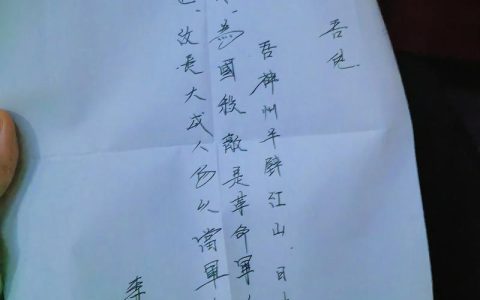 吾
吾神州半壁江山.日
為國殺敵是革命軍人
故長大成人多以當軍
李